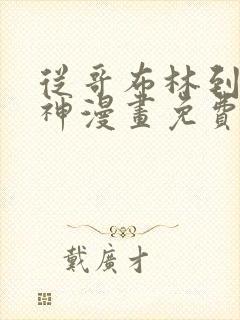 從哥布林到
神漫畫免費
戴廣才